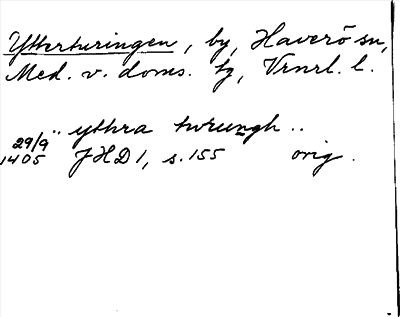 Ytterturingen, by, Haverö sn,
Med. v. doms. tg, Vrnrl. l.
.. ythra twrungh ..
29/9
1405 JHD 1, s. 155 orig.